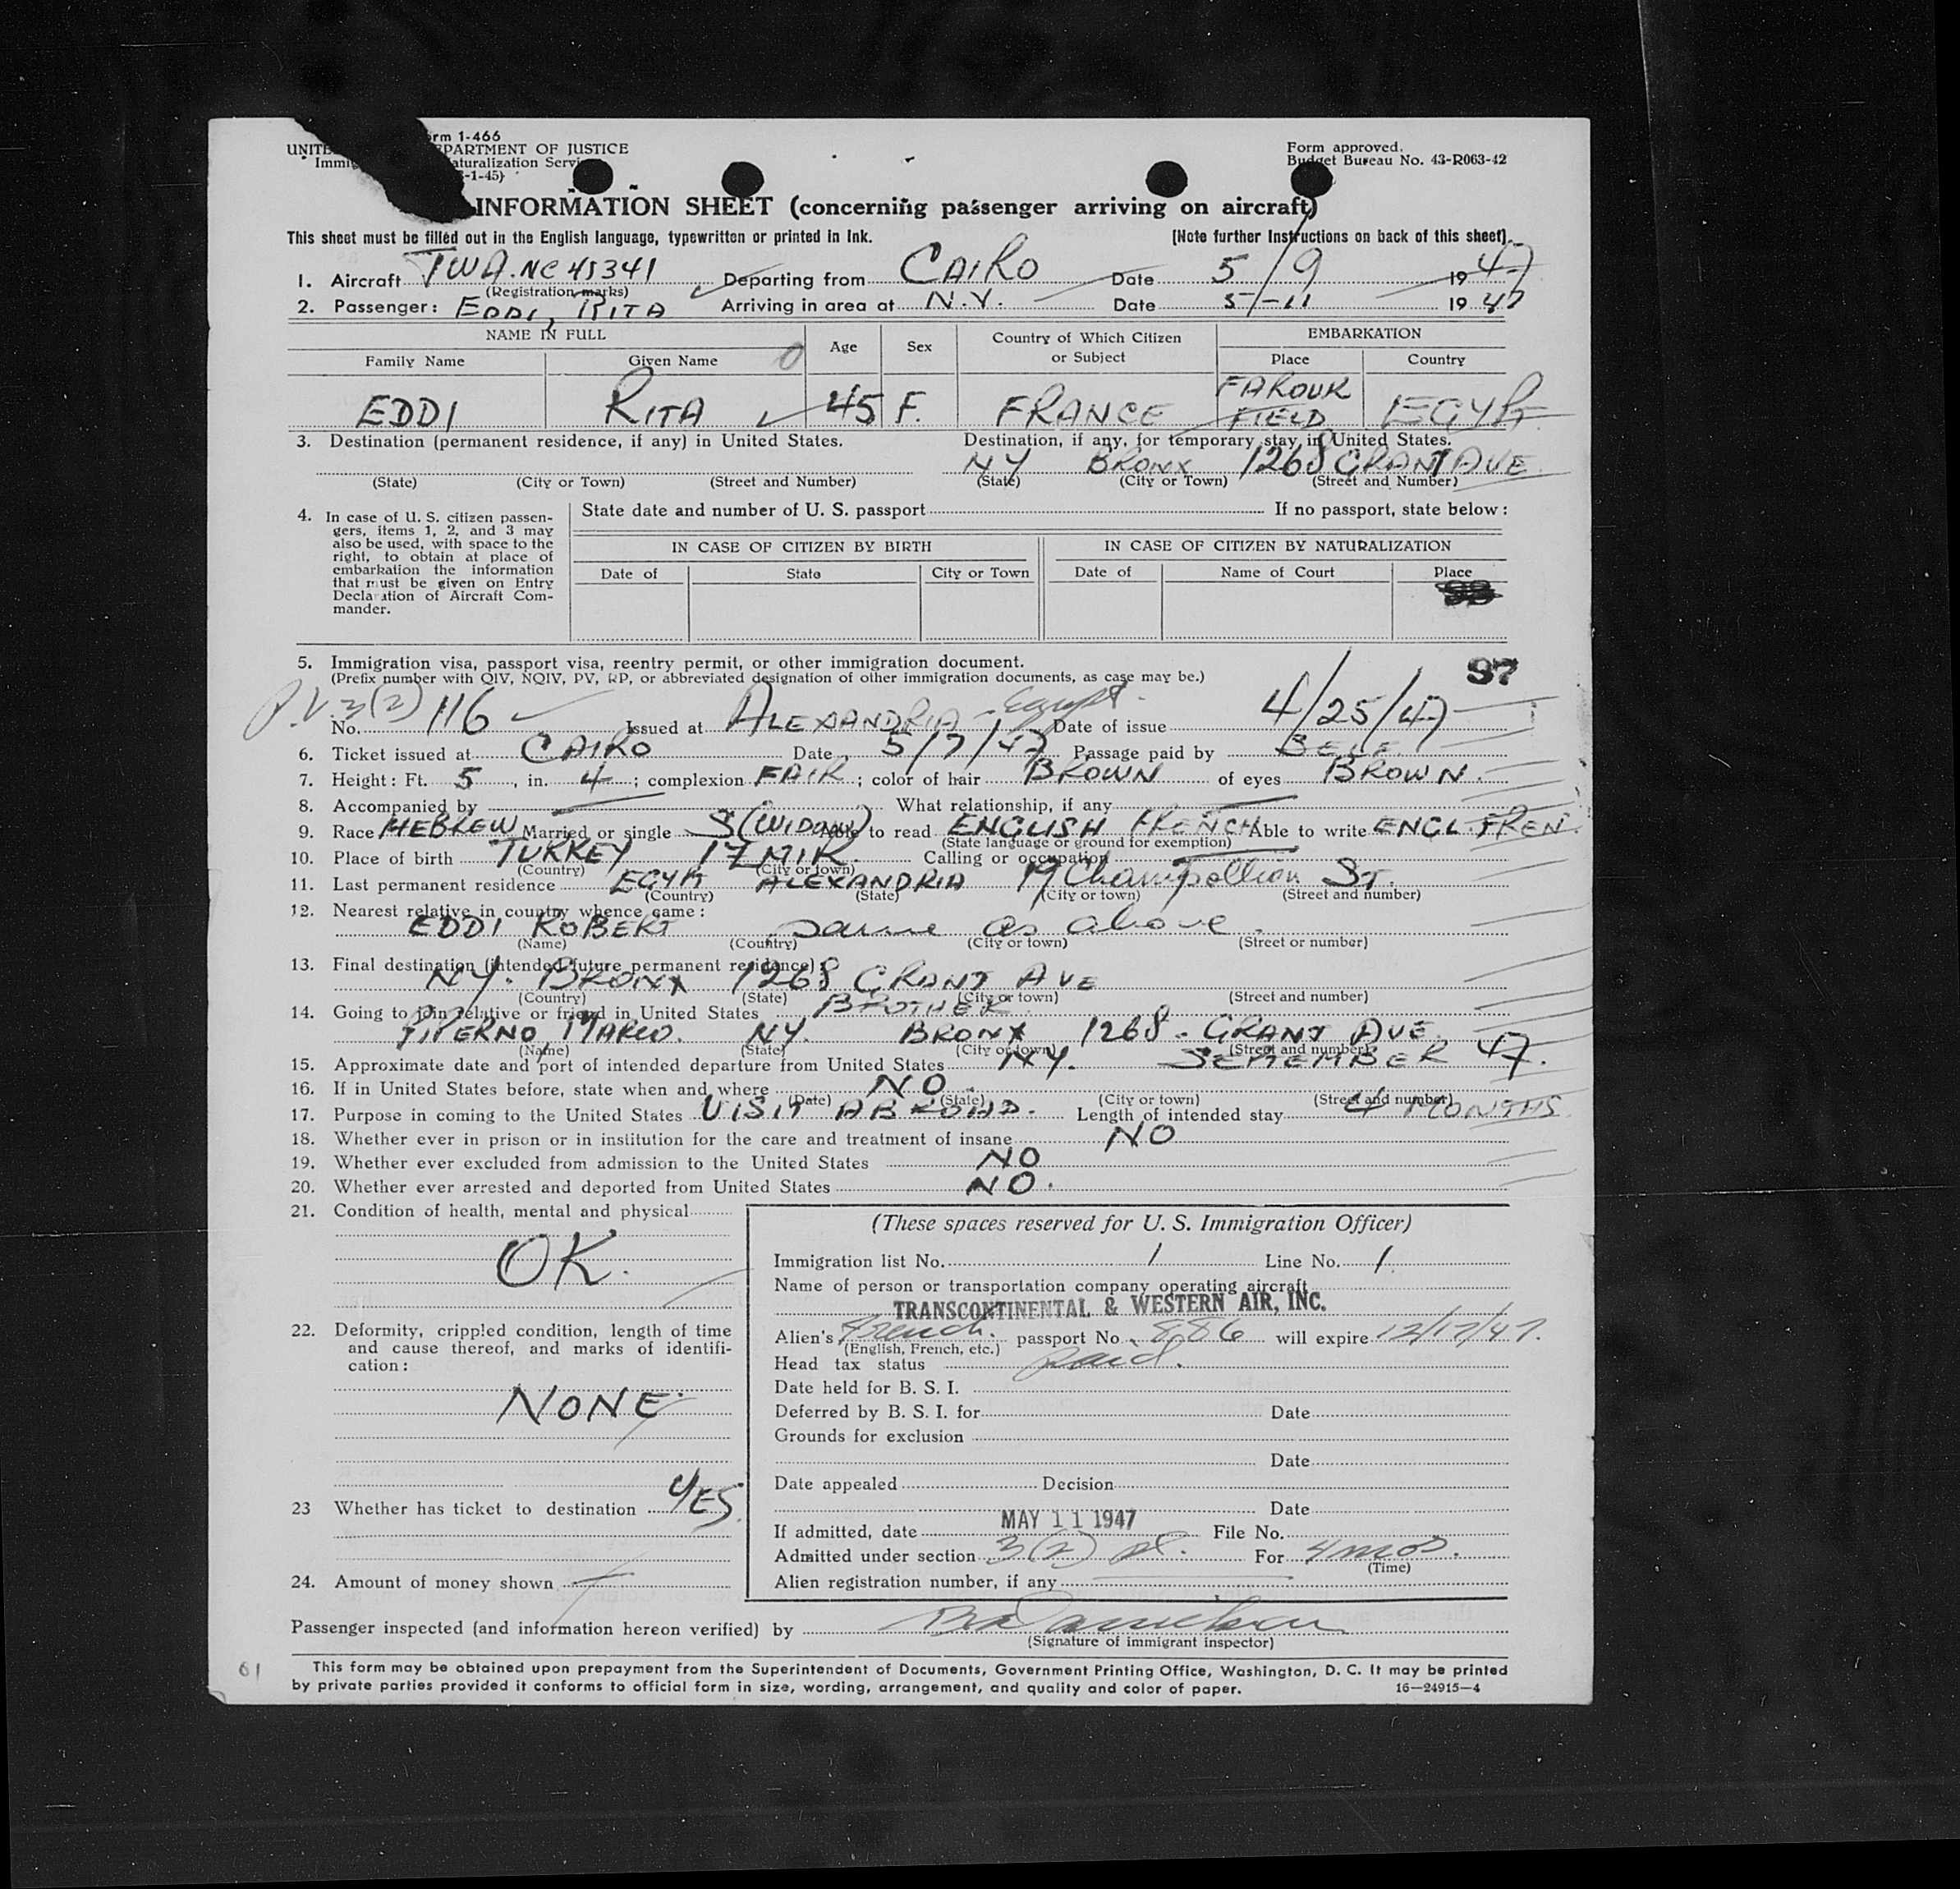 rm 1-466
UNITE PARTMENT OF JUSTICE
Immig aturalization Servi
-1-45)
Form approved.
Budget Bureau No. 43-R063-42
INFORMATION SHEET (concerning passenger arriving on aircraft)
This sheet must be filled out in the English language, typewritten or printed in ink. (Note further Instructions on back of this sheet).
1. Aircraft TWA. NC 45341 Departing from CAIRO Date 5/9 1947
(Registration marks)
2. Passenger: EDDI, RITA Arriving in area at N.Y. Date 5-11 1947
NAME IN FULL Age Sex Country of Which Citizen or Subject EMBARKATION
Family Name Given Name Place Country
EDDI RITA 45 F. FRANCE FAROUK FIELD EGYPT
3. Destination (permanent residence, if any) in United States. Destination, if any, for temporary stay in United States.
NY BRONX 1268 GRANT AVE
(State) (City or Town) (Street and Number) (State) (City or Town) (Street and Number)
4. In case of U. S. citizen passengers, items 1, 2, and 3 may also be used, with space to the right, to obtain at place of embarkation the information that must be given on Entry Declaration of Aircraft Commander.
State date and number of U. S. passport If no passport, state below:
IN CASE OF CITIZEN BY BIRTH IN CASE OF CITIZEN BY NATURALIZATION
Date of State City or Town Date of Name of Court Place
5. Immigration visa, passport visa, reentry permit, or other immigration document. 97
(Prefix number with QIV, NQIV, PV, RP, or abbreviated designation of other immigration documents, as case may be.)
P.V. 3(2) No. 116 Issued at ALEXANDRIA - Egypt. Date of issue 4/25/47
6. Ticket issued at CAIRO Date 5/7/47 Passage paid by SELF
7. Height: Ft. 5, in. 4; complexion FAIR; color of hair BROWN of eyes BROWN.
8. Accompanied by What relationship, if any
9. Race HEBREW Married or single S (WIDOW) Able to read ENGLISH FRENCH Able to write ENGL. FREN.
(State language or ground for exemption)
10. Place of birth TURKEY IZMIR. Calling or occupation
(Country) (City or town)
11. Last permanent residence EGYPT ALEXANDRIA 19 Champollion ST.
(Country) (State) (City or town) (Street and number)
12. Nearest relative in country whence came:
EDDI ROBERT same as above.
(Name) (Country) (City or town) (Street or number)
13. Final destination (intended future permanent residence):
NY. BRONX 1268 GRANT AVE
(Country) (State) (City or town) (Street and number)
14. Going to join relative or friend in United States BROTHER
PIPERNO, MARIO. NY. BRONX 1268 - GRANT AVE.
(Name) (State) (City or town) (Street and number)
15. Approximate date and port of intended departure from United States NY. SEPTEMBER 47.
16. If in United States before, state when and where NO.
(Date) (State) (City or town) (Street and number)
17. Purpose in coming to the United States VISIT ABROAD. Length of intended stay 4 MONTHS
18. Whether ever in prison or in institution for the care and treatment of insane NO
19. Whether ever excluded from admission to the United States NO
20. Whether ever arrested and deported from United States NO.
21. Condition of health, mental and physical
OK.
22. Deformity, crippled condition, length of time
and cause thereof, and marks of identification:
NONE
23 Whether has ticket to destination YES
24. Amount of money shown
(These spaces reserved for U. S. Immigration Officer)
Immigration list No. 1 Line No. 1
Name of person or transportation company operating aircraft
TRANSCONTINENTAL & WESTERN AIR, INC.
Alien's French. passport No. 886 will expire 12/17/47.
(English, French, etc.)
Head tax status paid.
Date held for B. S. I.
Deferred by B. S. I. for Date
Grounds for exclusion
Date
Date appealed Decision
Date
If admitted, date MAY 11 1947 File No.
Admitted under section 3(2) For 4 mos.
(Time)
Alien registration number, if any
Passenger inspected (and information hereon verified) by
(Signature of immigrant inspector)
61
This form may be obtained upon prepayment from the Superintendent of Documents, Government Printing Office, Washington, D. C. It may be printed
by private parties provided it conforms to official form in size, wording, arrangement, and quality and color of paper. 16—24915-4